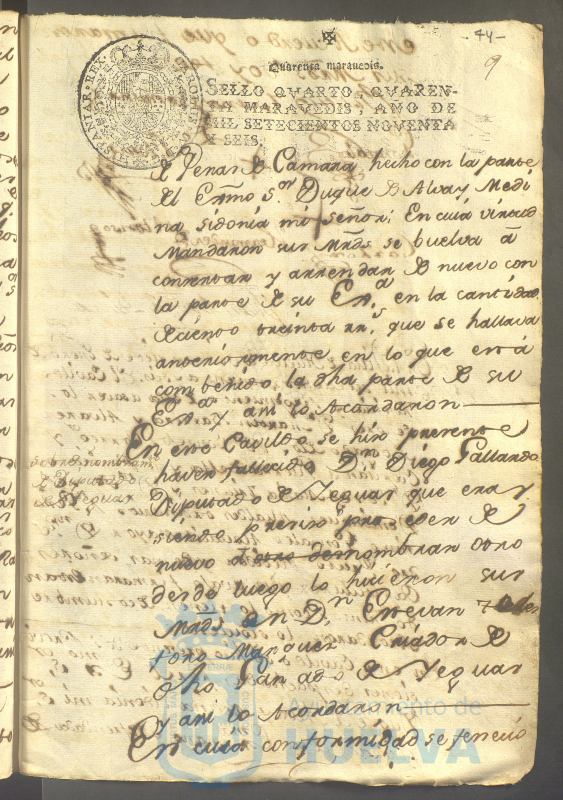 -44-
9
Quarenta maravedis.
SELLO QVARTO, QVAREN-
TA MARAVEDIS, AÑO DE
MIL SETECIENTOS NOVENTA
Y SEIS.
CAROLUS
HISPANIAR REX
de Penas de Camara, hecho con la parte
del Exmo. Sor. Duque de Alva y Medi
na sidonia mi señor; En cuia virtud
Mandaron sus Mrds se buelva á
contratar y arrendar de nuevo con
la parte de su Exa. en la cantidad
de ciento treinta rrs. que se hallava
anteriormente en lo que está
combenido la dha parte de su
Exa. y asi lo Acordaron
En este Cavildo se hizo presente
haver fallecido Dn. Diego Gallardo
Diputado de Yeguas que era y
siendo preciso proceder de
nuevo a nombrar otro
desde luego lo hicieron sus
Mrds en Dn. Estevan
Marquez Criador de
dho Ganado de Yeguas
y asi lo Acordaron
En cuia conformidad se fenecio
sobre nombram
de Diputado
de Yeguas
Ayuntamiento de
HUELVA